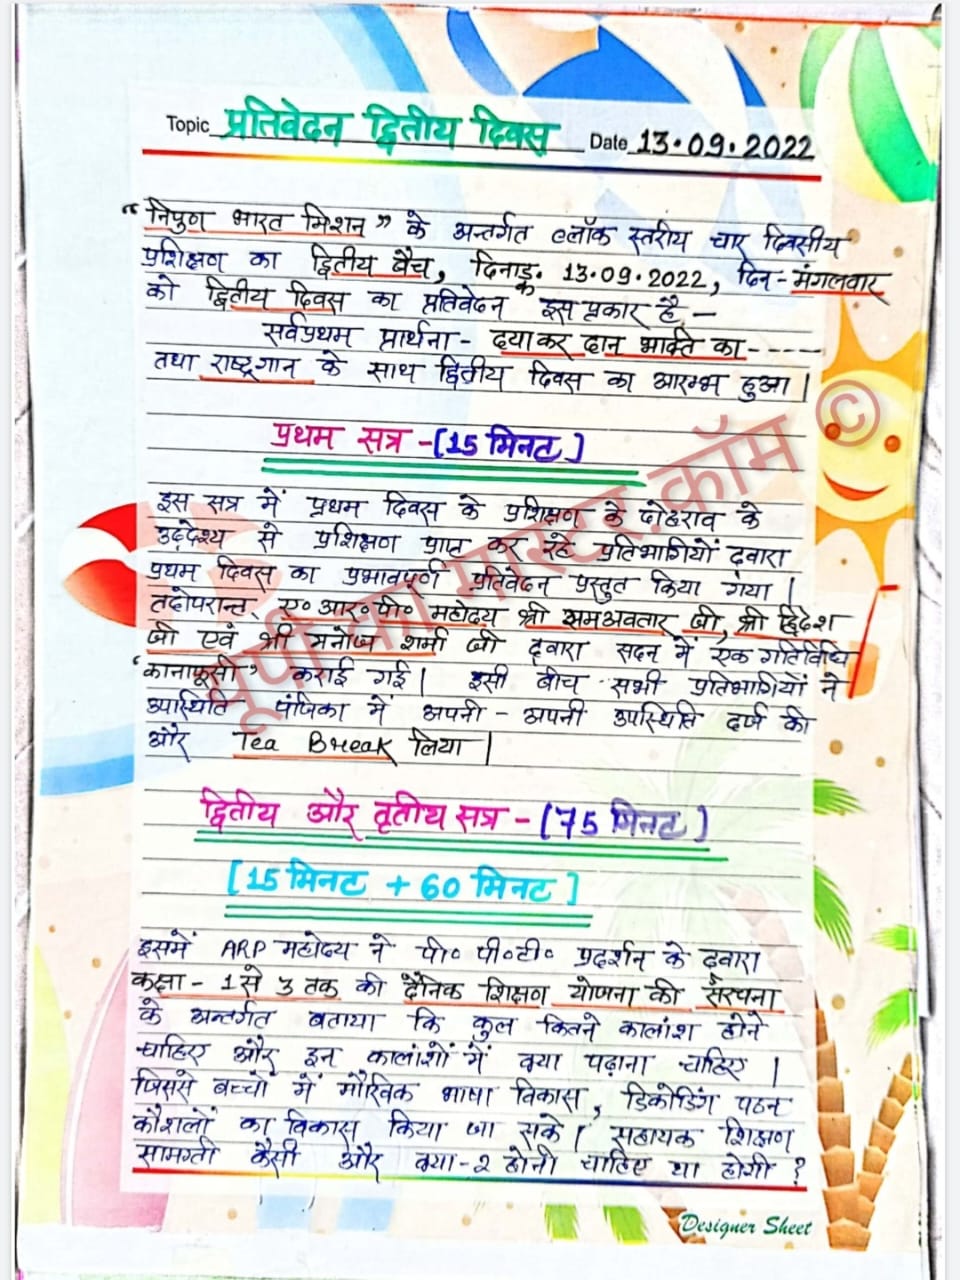 Topic प्रतिवेदन द्वितीय दिवस Date 13.09.2022
"निपुण भारत मिशन" के अन्तर्गत ब्लॉक स्तरीय चार दिवसीय
प्रशिक्षण का द्वितीय बैच, दिनाङ्क 13.09.2022, दिन- मंगलवार
को द्वितीय दिवस का प्रतिवेदन इस प्रकार है,—
सर्वप्रथम प्रार्थना- दया कर दान भक्ति का-----
तथा राष्ट्रगान के साथ द्वितीय दिवस का आरम्भ हुआ।
प्रथम सत्र -[15 मिनट]
इस सत्र में प्रथम दिवस के प्रशिक्षण के दोहराव के
उद्देश्य से प्रशिक्षण प्राप्त कर रहे प्रतिभागियों द्वारा
प्रथम दिवस का प्रभावपूर्ण प्रतिवेदन प्रस्तुत किया गया।
तदोपरान्त ए०आर०पी० महोदय श्री रामअवतार जी, श्री हृदेश
जी एवं श्री मनोज शर्मा जी द्वारा सदन में एक गतिविधि
'कानाफूसी" कराई गई। इसी बीच सभी प्रतिभागियों ने
उपस्थिति पंजिका में अपनी-अपनी उपस्थिति दर्ज की
और Tea Break लिया।
द्वितीय और तृतीय सत्र -[75 मिनट]
[15 मिनट + 60 मिनट]
इसमें ARP महोदय ने पी० पी०टी० प्रदर्शन के द्वारा
कक्षा- 1 से 3 तक की दैनिक शिक्षण योजना की संरचना
के अन्तर्गत बताया कि कुल कितने कालांश होने
चाहिए और इन कालांशों में क्या पढ़ाना चाहिए।
जिससे बच्चों में मौखिक भाषा विकास, डिकोडिंग पठन
कौशलों का विकास किया जा सके। सहायक शिक्षण
सामग्री कैसी और क्या-2 होनी चाहिए या होगी?
Designer Sheet
यूपी का मास्टर.कॉम ©